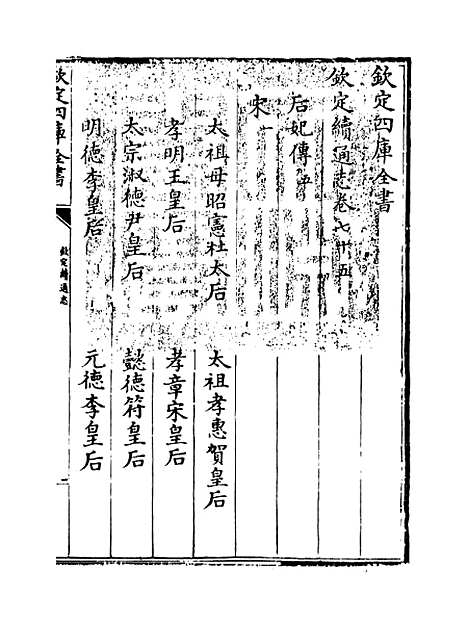 欽定四庫全書
欽定續通志卷七十五
后妃傳五
宋一
太祖母昭憲杜太后 太祖孝惠賀皇后
孝明王皇后 孝章宋皇后
太宗淑德尹皇后 懿德符皇后
明德李皇后 元德李皇后
欽定四庫全書
欽定續通志
一